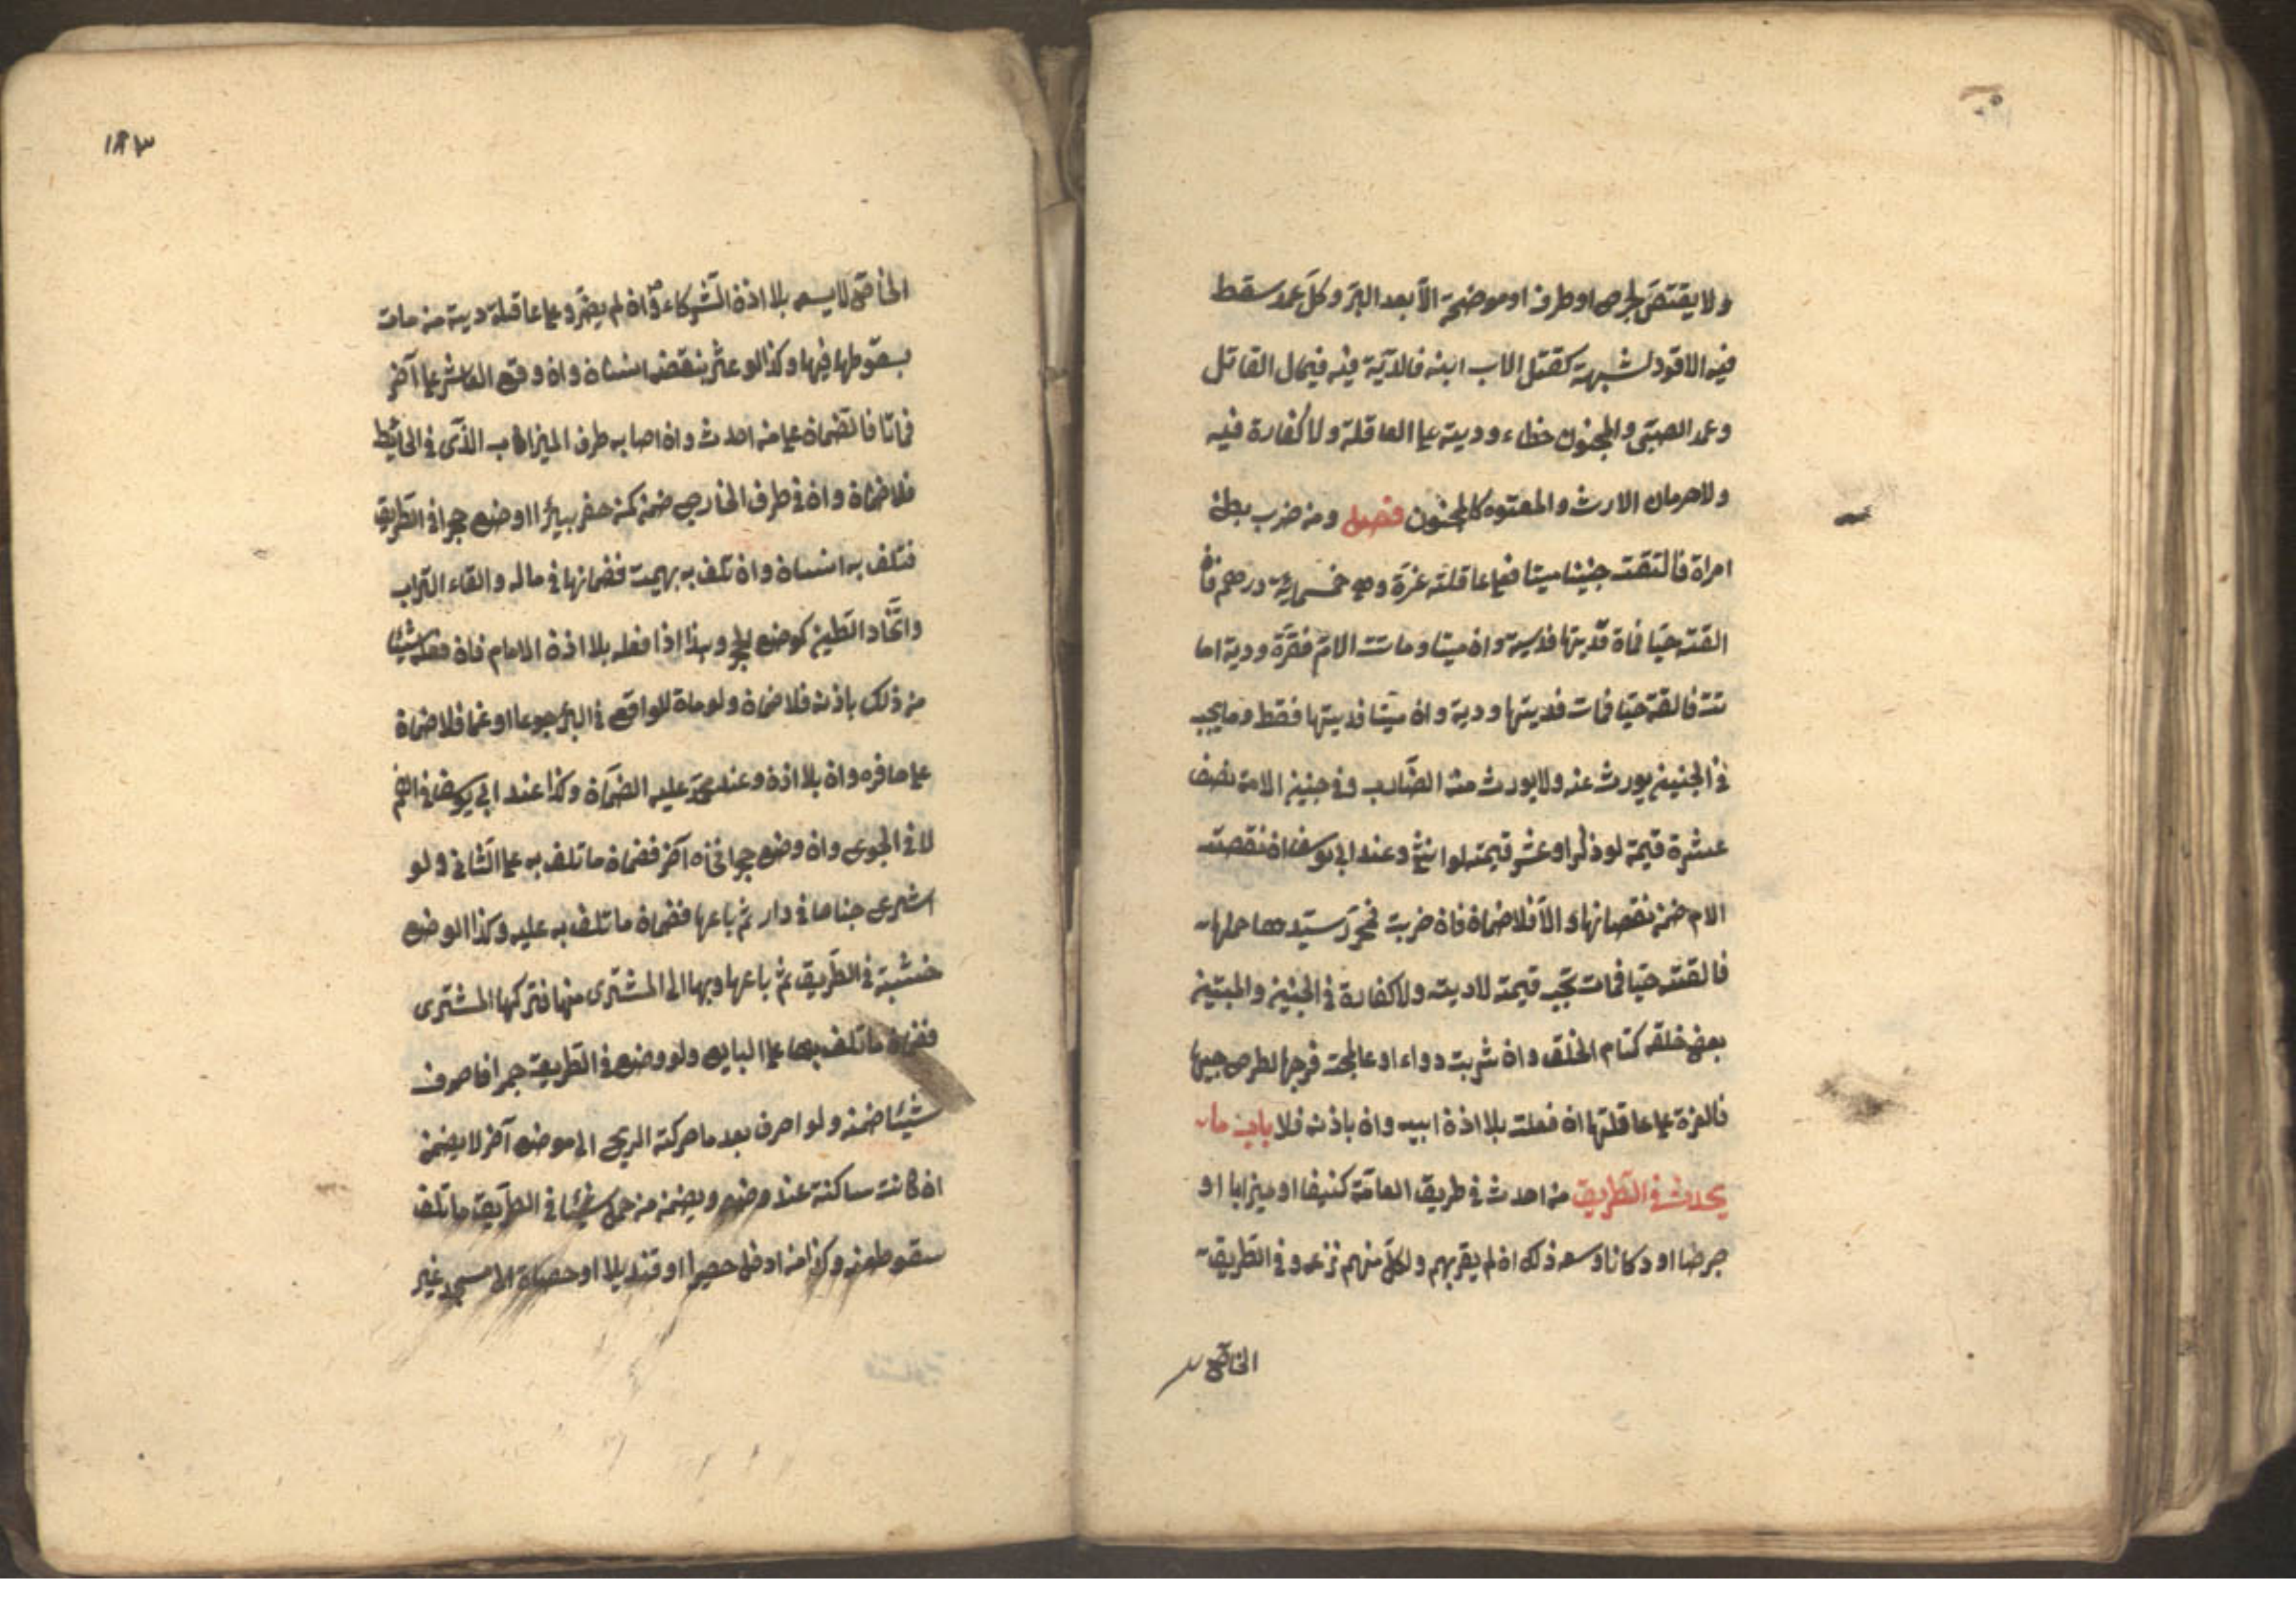 ولا يقتصّ لجرح او طرف او موضحة الّا بعد البرء وكلّ عمد سقط
فيه القود لشبهة كقتل الاب ابنه فالدّية فيه في مال القاتل
وعمد الصبّى والمجنون خطاء وديته على العاقلة ولا كفارة فيه
ولا حرمان الارث والمعتوه كالمجنون فصل ومن ضرب بطن
امراة فالقت جنينا ميتا فعلى عاقلته غرّة وهى خمسماية درهم فان
القته حيّا فمات فدية وان ميتا وماتت الامّ فغرّة ودية
تت فالقته حيّا فمات فديتها ودية وان ميّتا فديتها فقط وما يجب
فى الجنين يورث عنه ولا يورث منه الضّارب وفى جنين الامة نصف
عشرة قيمة لو ذكرا وعشر قيمته لو انثى وعند ابى يوسف ان نقصت
الام ضمن نقصانها والّا فلا ضمان فان ضربت فحرّر سيّدها حملها
فالقته حيّا فمات تجب قيمته لا ديته ولا كفارة فى الجنين والمبتين
بعض خلقه كتام الخلق وان شربت دواء او عالجت فرجها لطرح جنينها
فالغرة على عاقلتها ان فعلت بلا اذن ابيه وان باذنه فلا باب ما
يحدث فى الطّريق من احدث فى طريق العامّة كنيفا او ميزابا او
جرصنا او دكانا وسعه ذلك ان لم يضر بهم ولكلّ منهم نزعه وفى الطّريق
الخاصّ
١٨٣
الخاصّ لا يسعه بلا اذن الشّركاء وان لم يضرّ وعلى عاقلته دية من مات
بسقوطها فيها وكذا لو عثر بنقضه انسان وان وقع العاثر على آخر
فماتا فالضّمان على من احدث وان اصابه طرف الميزاب الذّى فى الحائط
فلا ضمان وان فى طرف الخارج ضمن كمن حفر بيرًا او وضع حجرا فى الطّريق
فتلف به انسان وان تلف به بهيمة فضمانها فى ماله والقاء التّراب
واتّخاذ الطّين كوضع الحجر وهذا اذا فعله بلا اذن الامام فان فعل شيئا
من ذلك باذنه فلا ضمان ولو مات الواقع فى البئر جوعا او غما فلا ضمان
على حافره وان بلا اذن وعند محمّد عليه الضّمان وكذا عند ابى يوسف فى الغم
لا فى الجوع وان وضع حجرا فنحاه آخر فضمان ما تلف به على الثّانى ولو
اشرع جناحا فى دار ثم باعها فضمان ما تلف به عليه وكذا لو وضع
خشبة فى الطّريق ثم باعها وبرئ الى المشترى منها فتركها المشترى
فضمان ما تلف بها على البايع ولو وضع فى الطّريق جمرا فاحرق
شيئا ضمنه ولو احرق بعد ما حركته الريح الى موضع آخر لا يضمن
ان كانت ساكنة عند وضعه ويضمن من حمل شيئا فى الطّريق ما تلف
بسقوطه منه وكذا من ادخل حصيرا او قنديلا او حصاة الى مسجد غير